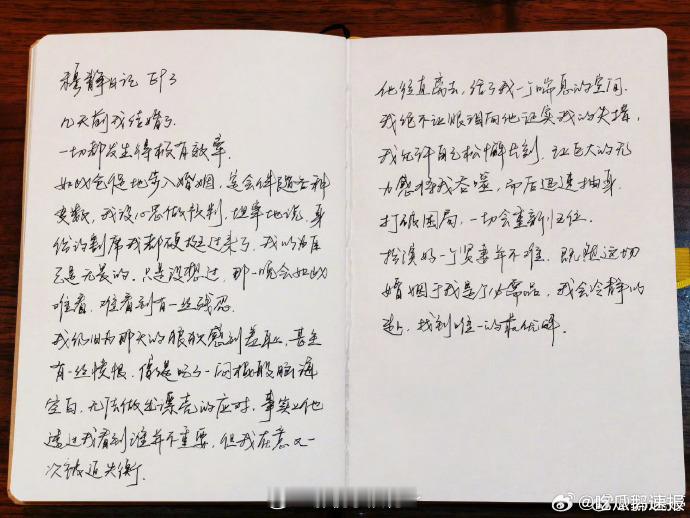 穆静日记 EP3
几天前我结婚了
一切都发生得极有效率.
如此仓促地步入婚姻,定会伴随各种
变数,我没心思做预判,坦率地说,身
份的割席我都硬挺过来了,我以为自
己是无畏的.只是没想过,那一晚会如此
难看,难看到有一丝残忍.
我仍旧为那天的狼狈感到羞耻,甚至
有一丝愤恨,像是吃了一闷棍般脑海
空白,无法做出漂亮的应对,事实上他
透过我看到谁并不重要,但我在意又一
次被逼失衡.
他径直离去,给了我一个喘息的空间.
我绝不让眼泪向他证实我的失措,
我允许自己松懈片刻,让巨大的无
力感将我吞噬,而后迅速抽身.
打破困局,一切会重新归位.
扮演好一个贤妻并不难,既然这切
婚姻于我是个必需品,我会冷静的
找到唯一的最优解.
@吃瓜鹅速报